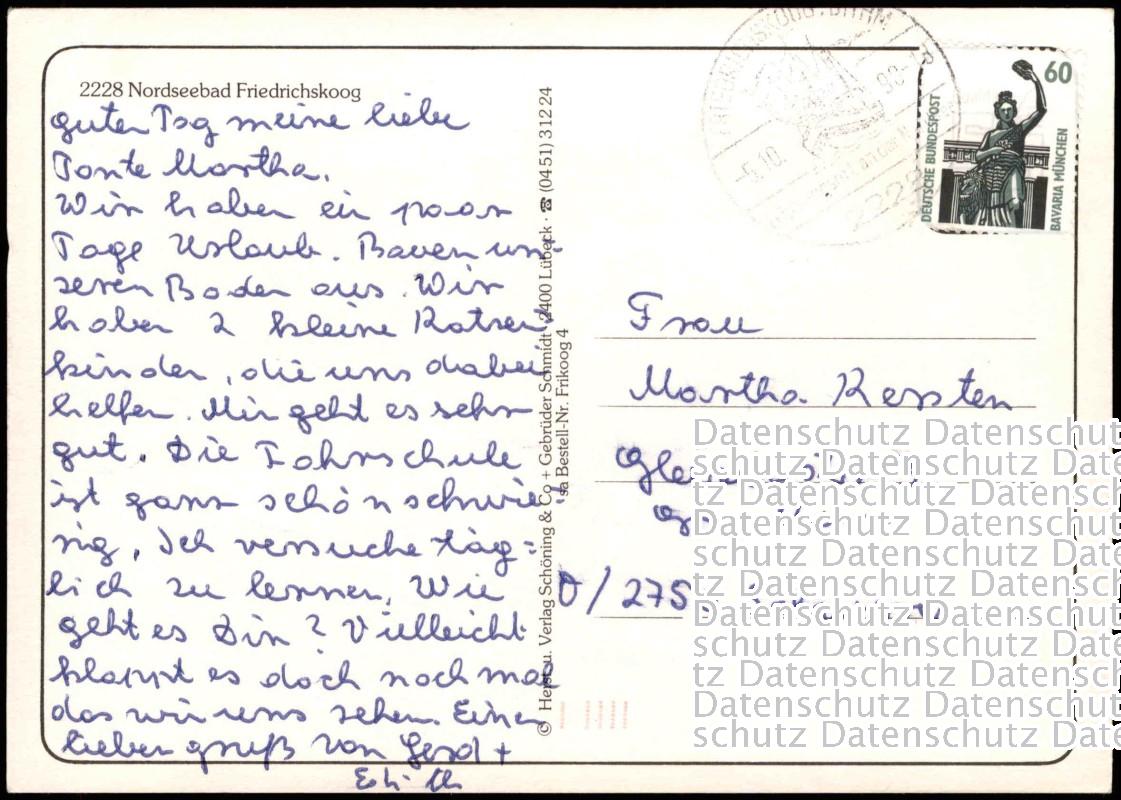 2228 Nordseebad Friedrichskoog
guten Tag meine liebe
Tante Martha.
Wir haben ein paar
Tage Urlaub. Bauen un-
seren Boden aus. Wir
haben 2 kleine Katzen
kinder, die uns dabei
helfen. Mir geht es sehr
gut. Die Fahrschule
ist ganz schön schwie-
rig, Ich versuche täg=
lich zu lernen. Wie
geht es Dir? Vielleicht
klappt es doch noch mal
das wir uns sehen. Einen
lieben gruß von Gerd +
© Hept u. Verlag Schöning & Co + Gebrüder Schmidt · 2400 Lübeck · ☎ (04 51) 3 12 24
sa Bestell-Nr. Frikoog 4
5.10.
2228
60
DEUTSCHE BUNDESPOST
BAVARIA MÜNCHEN
Frau
Martha Kersten
O/275
Datenschutz Datenschut
schutz Datenschutz Date
tz Datenschutz Datensch
Datenschutz Datenschut
schutz Datenschutz Date
tz Datenschutz Datensch
Datenschutz Datenschut
schutz Datenschutz Date
tz Datenschutz Datensch
Datenschutz Datenschut
schutz Datenschutz Date